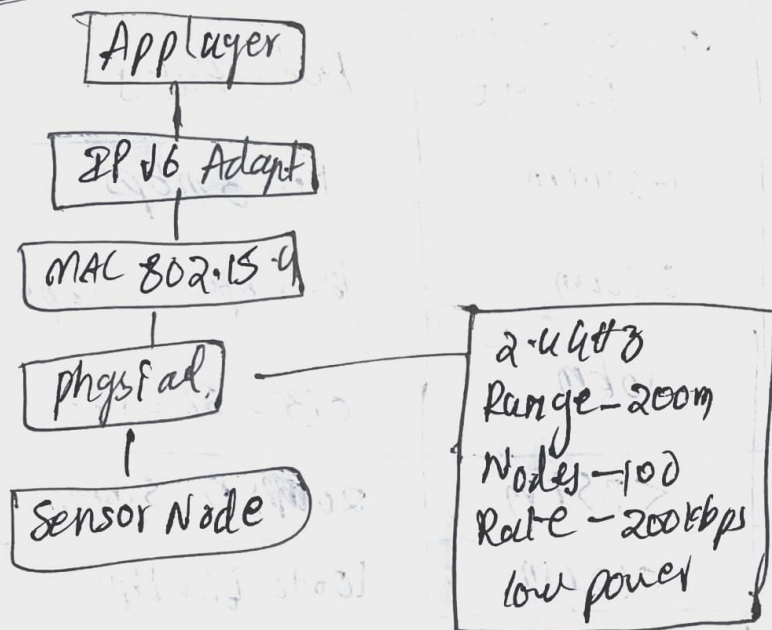 App layer
IPV6 Adapt
MAC 802.15.4
physical
Sensor Node
2.4GHz
Range - 200m
Nodes - 100
Rate - 200kbps
low power